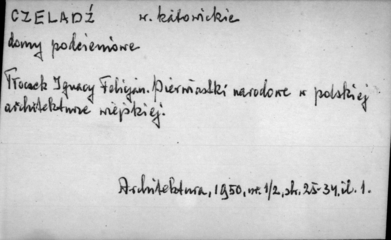 CZELADŹ w. katowickie
domy podcieniowe
Tłoczek Ignacy Felicjan. Pierwiastki narodowe w polskiej
architekturze wiejskiej.
Architektura, 1950, nr. 1/2, str. 25-34, il. 1.